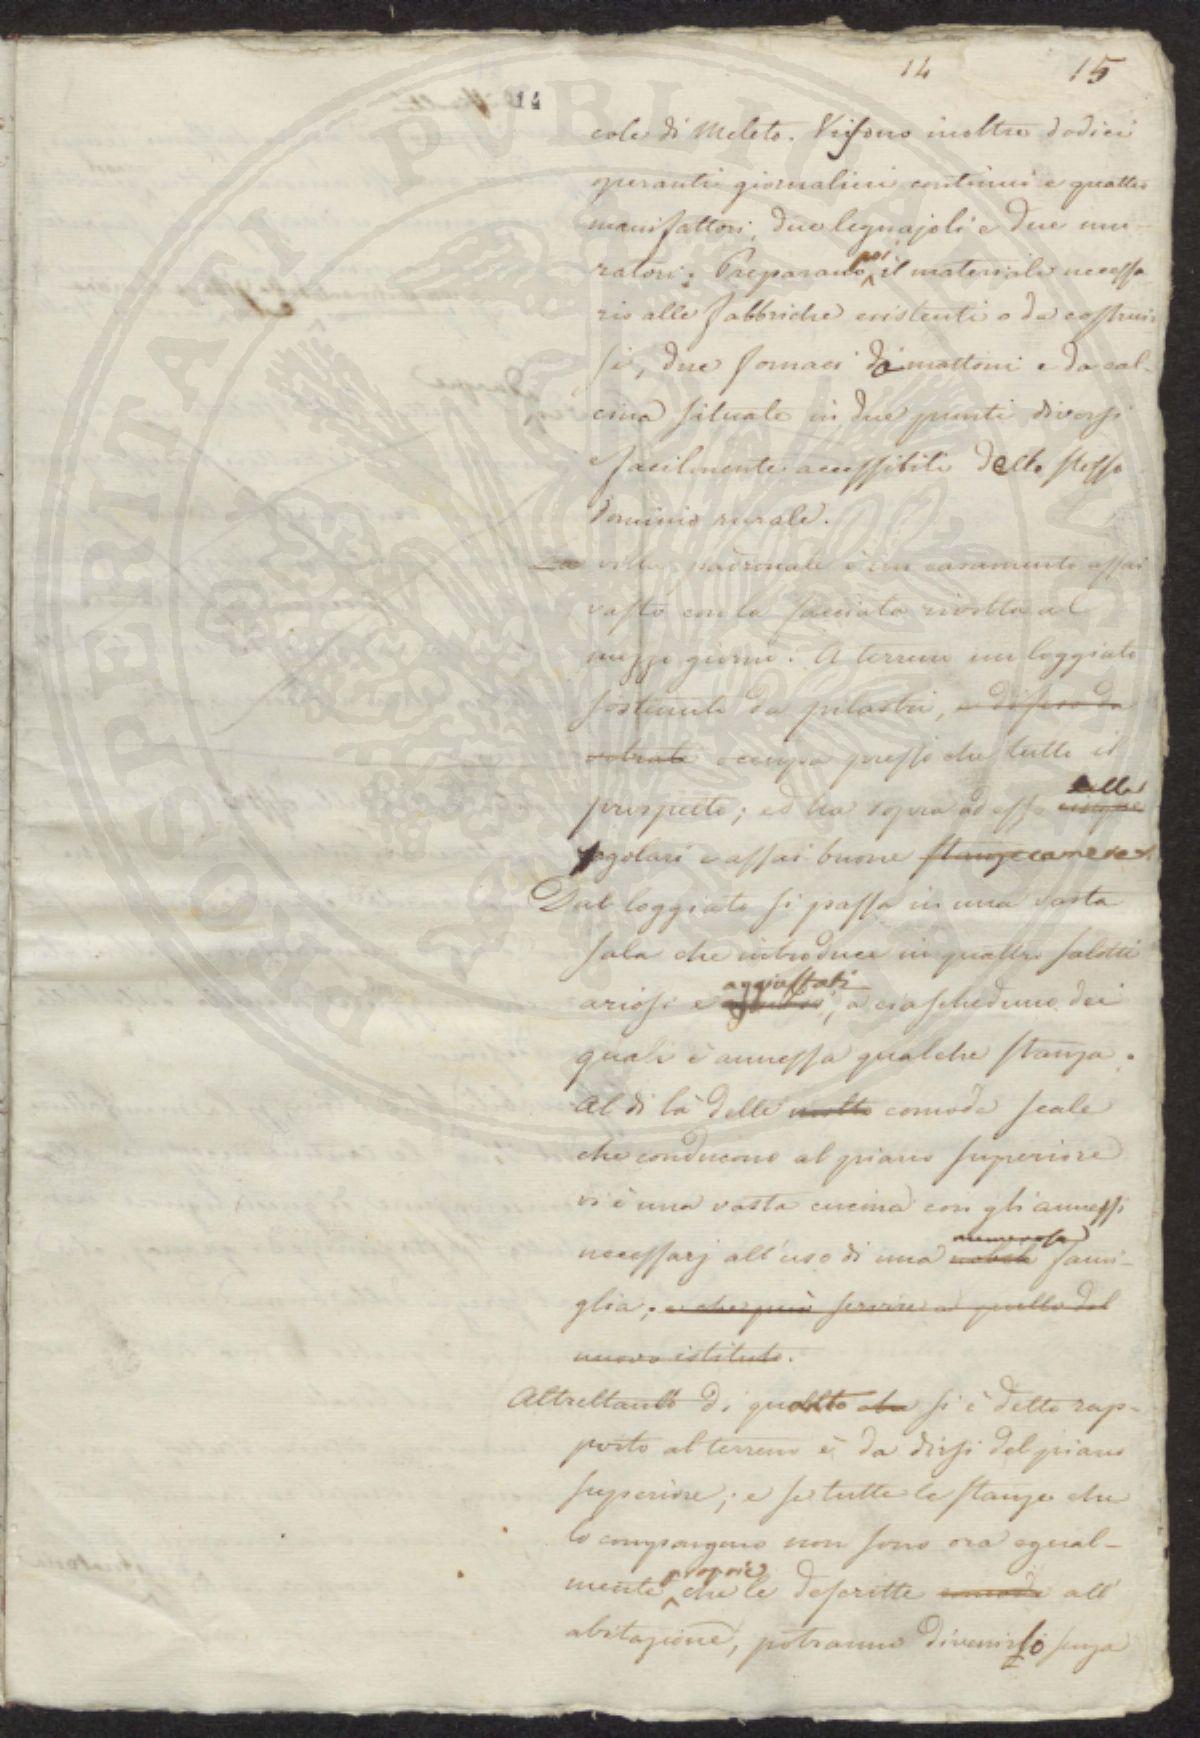 14 15
14
cole di Meleto. Vi sono inoltre dodici
operanti giornalieri continui e quattro
manifattori, due legnajoli e due mu-
ratori; Preparano poi il materiale necessa
rio alle fabbriche esistenti o da costruir
si, due fornaci da mattoni e da cal-
cina situate in due punti diversi
e facilmente accessibili dello stesso
dominio rurale.
La villa padronale è un casamento assai
vasto con la facciata rivolta al
mezzo giorno. A terreno un loggiato
sostenuto da pilastri, e difeso da
vetrate occupa presso che tutto il
prospetto; ed ha sopra ad esso
regolari e assai buone stanze camere
Dal loggiato si passa in una vasta
sala che introduce in quattro salotti
ariosi e aggiustati, a ciascheduno dei
quali è annessa qualche stanza.
Al di là delle molto comode scale
che conducono al piano superiore
vi è una vasta cucina con gli annessi
necessarj all'uso di una nobile numerosa fami-
glia; e che può servire a quello del
nuovo istituto.
Altrettanto di quanto si è detto rap-
porto al terreno è da dirsi del piano
superiore; e se tutte le stanze che
lo compongono non sono ora egual-
mente proprie che le descritte comode all'
abitazione, potranno divenirlo senza